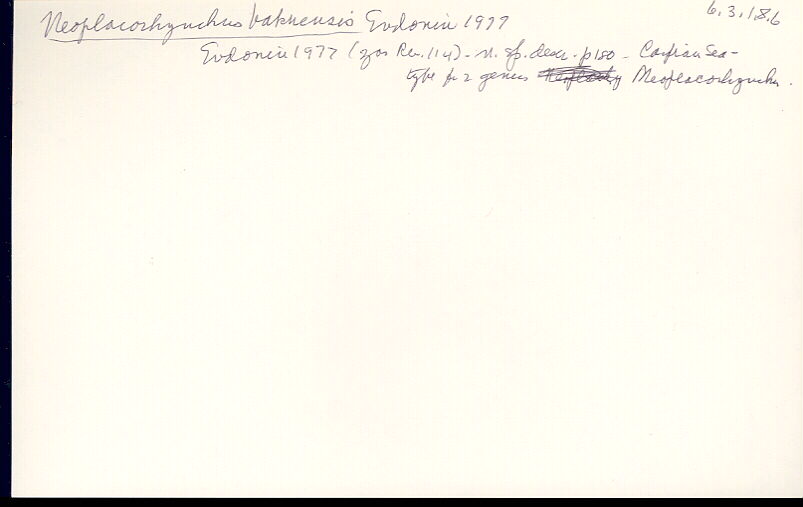 6.3.18.6
Neoplacorhynchus bakuensis Evdonin 1977
Evdonin 1977 (gos Rev. 114) - n. sp. descr. p180 - Caspian Sea -
type for n genus Neoplacorhynchus.